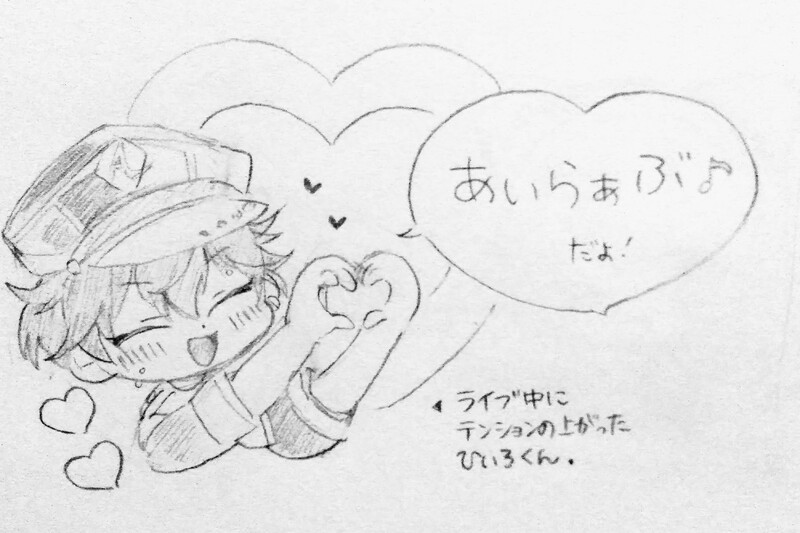 あいらぁぶ♪
だよ!
ライブ中に
テンションの上がった
ひいろくん.